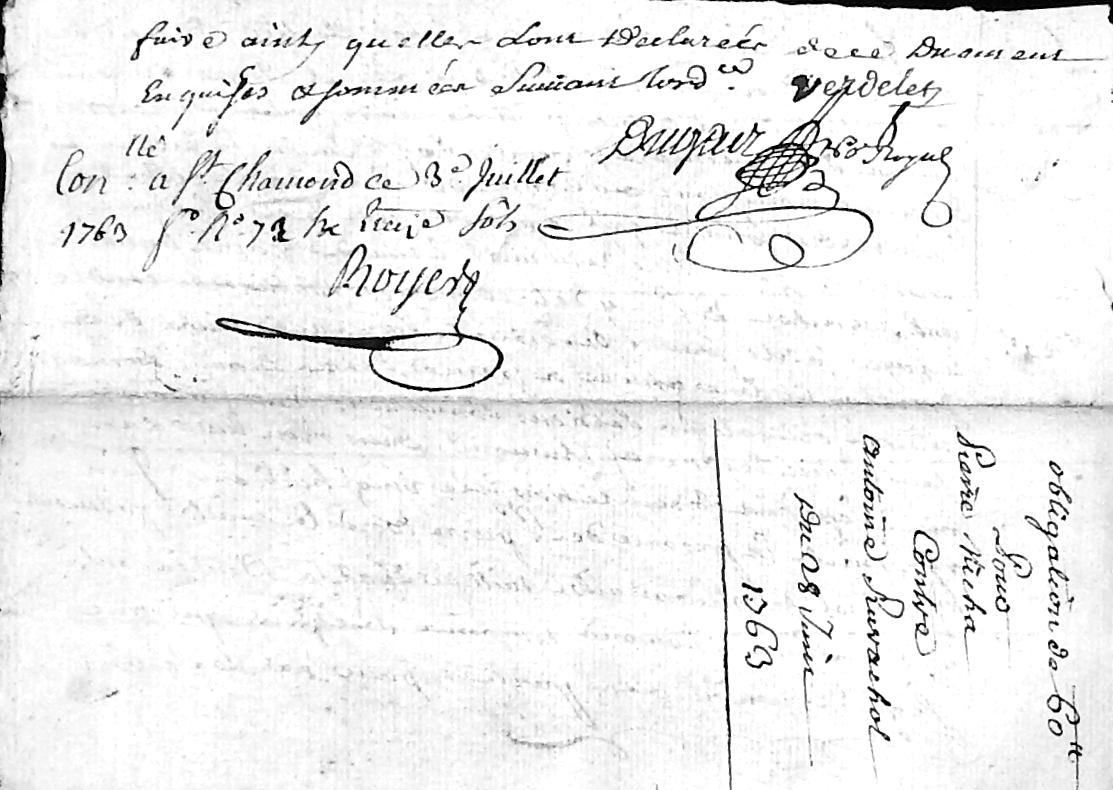 faire ainsy quelles Lont Declareés de ce Duement
Enquises et sommeés Suivant lord.ce Verdelet
Dugair No Royal
Con.llé a St. Chamond ce 3e. Juillet
1763 fo. Ro. 72 Re treize sols
Royer
obligation de 60 ll
Pour
Pierre Micha
Contre
Antoine Ravachol
Du 28 Juin
1763